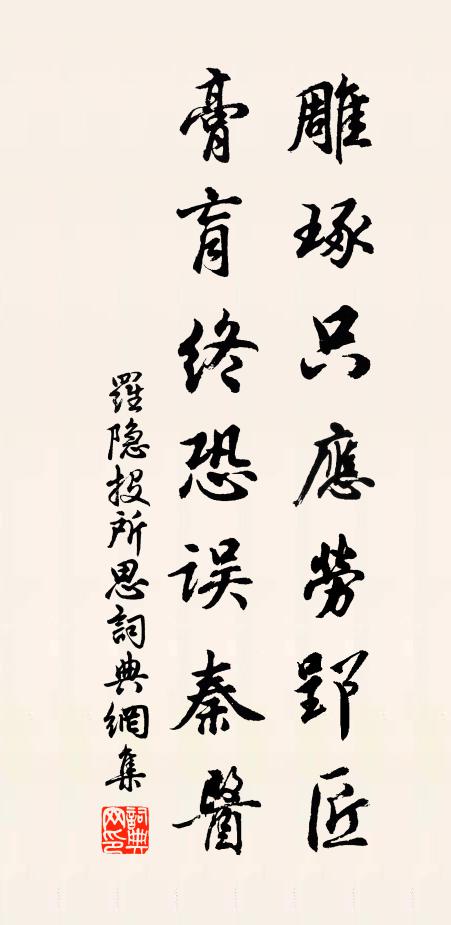 雕琢只應勞郢匠
膏肓終恐误秦醫
羅隐投所思詞典網集
詞典网印